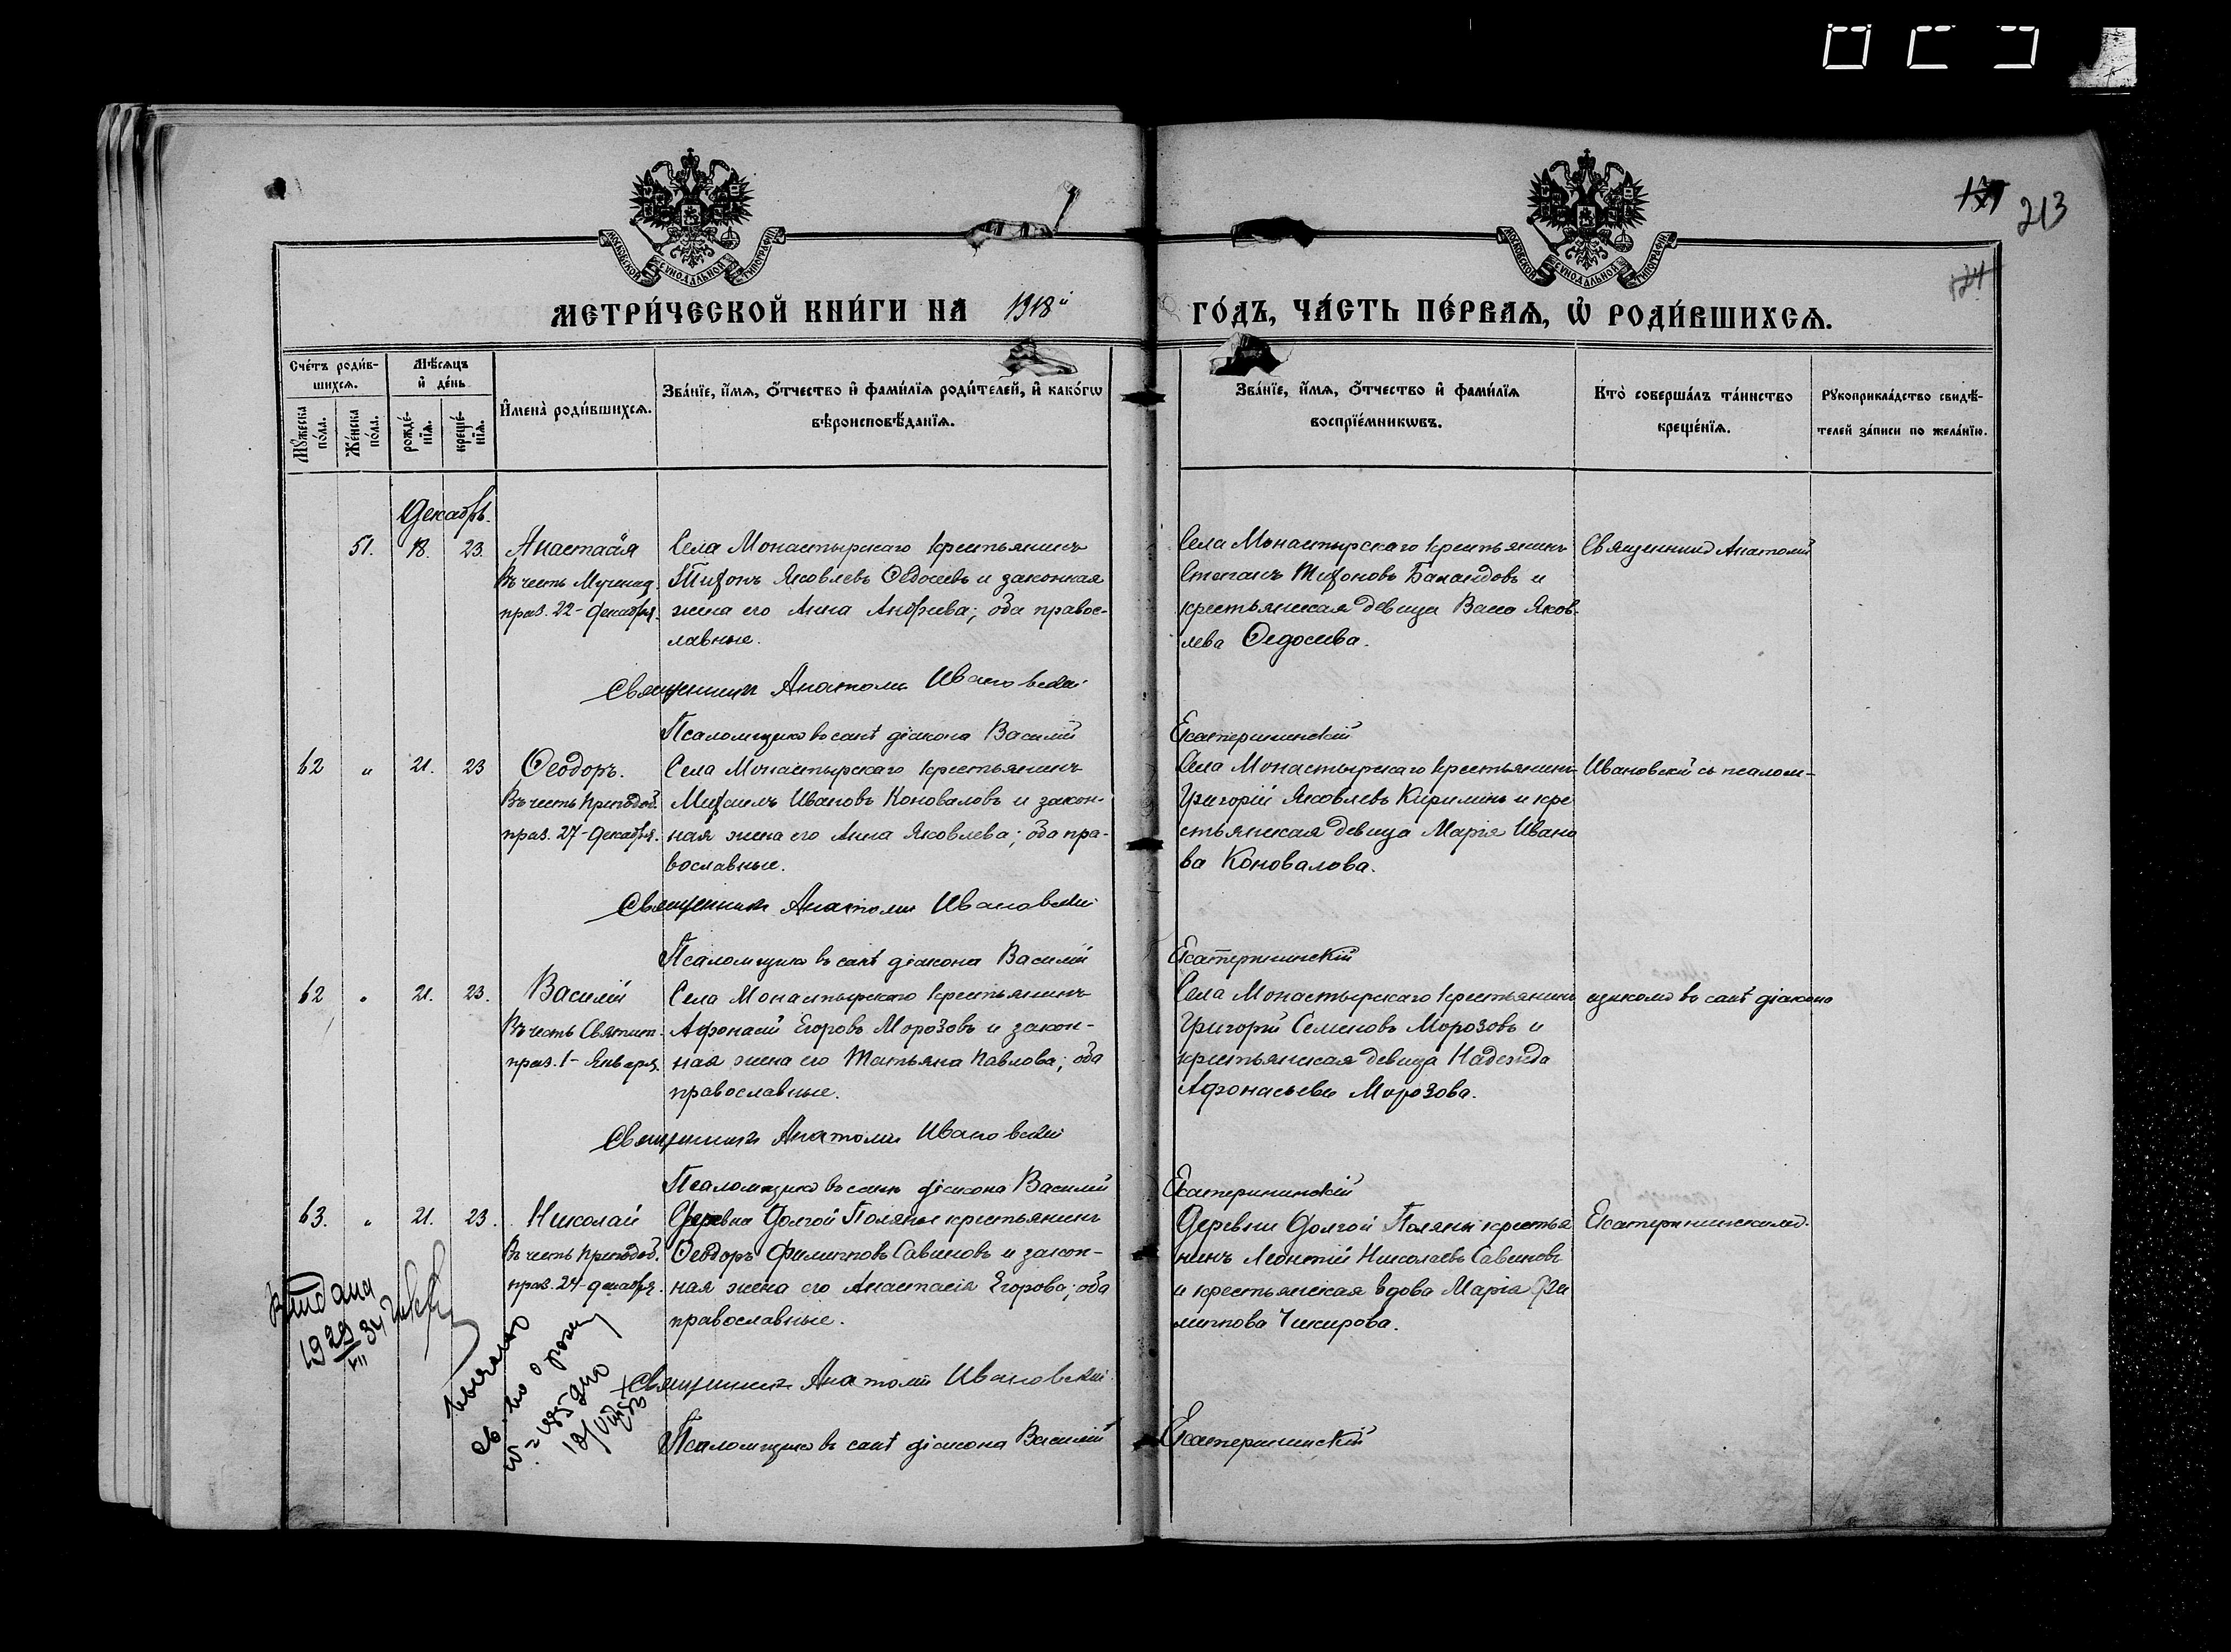 213
МОСКОВСКОЙ СУНОДАЛЬНОЙ ТИПОГРАФІИ
МОСКОВСКОЙ СУНОДАЛЬНОЙ ТИПОГРАФІИ
МЕТРИ́ЧЕСКОЙ КНИ́ГИ НА 1918й ГО́ДЪ, ЧА́СТЬ ПЕ́РВАѦ, Ѿ РОДИ́ВШИХСѦ.
Сче́тъ роди́в-
шихсѧ.
Мѹжеска по́ла.
Же́нска по́ла.
Мѣсѧцъ
и де́нь
рожде́-
нїѧ.
креще́-
нїѧ.
Имена̀ роди́вшихсѧ.
Зва́нїе, и́мѧ, о́тчество и фами́лїѧ роди́телей, и како́гѡ
вѣроисповѣ́данїѧ.
Зва́нїе, и́мѧ, о́тчество и фами́лїѧ
воспрїе́мникѡвъ.
Кто̀ соверша́лъ та́инство
креще́нїѧ.
Рꙋкоприкла́дство свидѣ́-
телей за́писи по жела́нїю.
Декабрь.
51. 18. 23. Анастасія
Въ честь Мученид.
праз. 22-Декабря.
Села Монастырскаго крестьянинъ
Тихонъ Яковлевъ Ѳедосеевъ и законная
жена его Анна Андреева; оба правос-
лавные.
Села Монастырскаго крестьянинъ
Степанъ Тихоновъ и
крестьянская девица Яков-
лева Ѳедосеева.
Священник Анатолій
Священникъ Анатолій Ивановскій
Псаломщикъ въ санѣ діакона Василій Екатерининскій
62 " 21. 23 Ѳеодоръ.
Въ честь Преподоб.
праз. 27-Декабря.
Села Монастырскаго крестьянинъ
Михаилъ Ивановъ Коноваловъ и закон-
ная жена его Анна Яковлева; оба пра-
вославные.
Села Монастырскаго крестьянинъ
Григорій Яковлевъ и кре
стьянская девица Марія Ивано
ва Коновалова.
Ивановскій съ псалом-
Священникъ Анатолій Ивановскій
Псаломщикъ въ санѣ діакона Василій Екатерининскій
62 " 21. 23. Василій
Въ честь Святит.
праз. 1-Января.
Села Монастырскаго крестьянинъ
Афонасій Егоровъ Морозовъ и закон-
ная жена его Татьяна Павлова; оба
православные.
Села Монастырскаго крестьянинъ
Григорій Семеновъ Морозовъ и
крестьянская девица Надежда
Афонасьева Морозова.
щикомъ въ санѣ діакона
Священникъ Анатолій Ивановскій
Псаломщикъ въ санѣ діакона Василій Екатерининскій
63. " 21. 23. Николай
Въ честь Преподоб.
праз. 24-декабря.
Деревни Долгой Поляны крестьянинъ
Ѳеодоръ Филипповъ Савиновъ и закон-
ная жена его Анастасія Егорова; оба
православные.
Деревни Долгой Поляны крестья
нинъ Леонтій Николаевъ Савиновъ
и крестьянская вдова Марія Фи
липпова Чикирова.
Екатерининскимъ.
Выдана
19 29/VII 34
Священникъ Анатолій Ивановскій
Псаломщикъ въ санѣ діакона Василій Екатерининскій